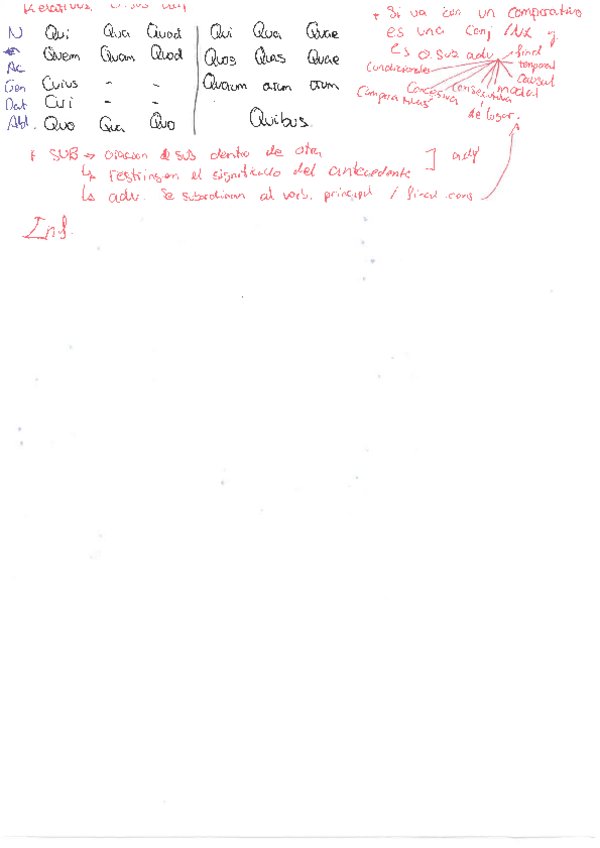 Relativos
N Qui Qua Quod | Qui Qua Quae
Ac Quem Quam Quod | Quos Quas Quae
Gen Cuius - - | Quorum arum orum
Dat Cui - -
Abl. Quo Qua Quo | Quibus
+ Si va con un comparativo
es una conj / NX y
es o. sub adv
final
temporal
causal
modal
de lugar.
consecutiva
Concesiva
Comparativas
Condicionales
+ SUB → oracion de sub dentro de otra
↳ restringen el significado del antecedente ] adj
↳ adv. Se subordinan al verb. principal / final cons
Inf.